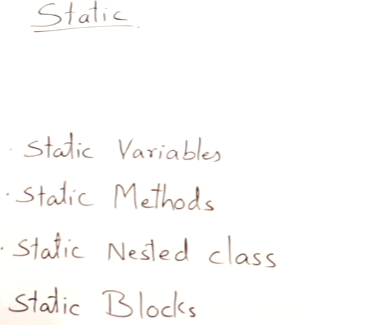 Static
· Static Variables
· Static Methods
· Static Nested class
Static Blocks